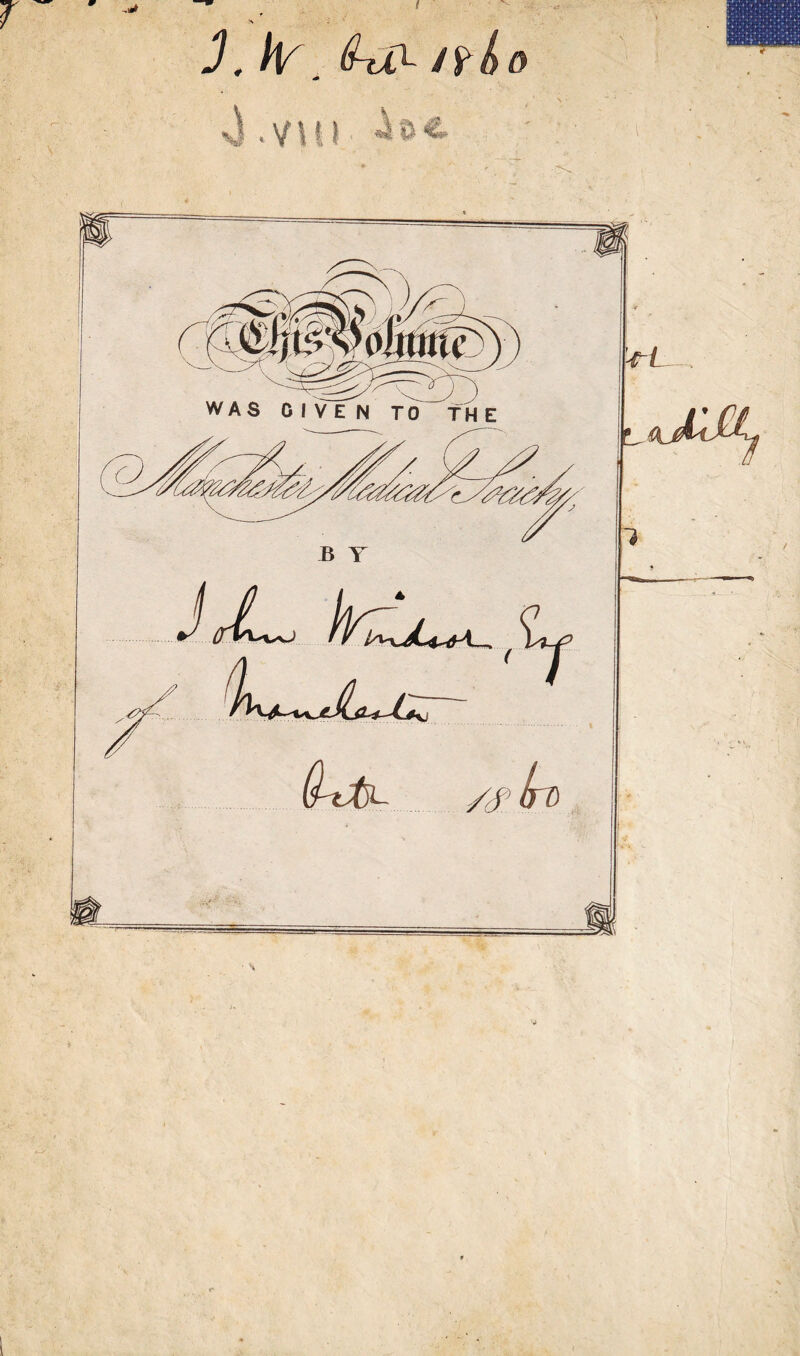 J. W. Octr 1860
J.VIII Joe
This Volume
WAS GIVEN TO THE
Manchester Medical Society,
BY
John Windsor, Esq
of Manchester
Octr 1860
adilly